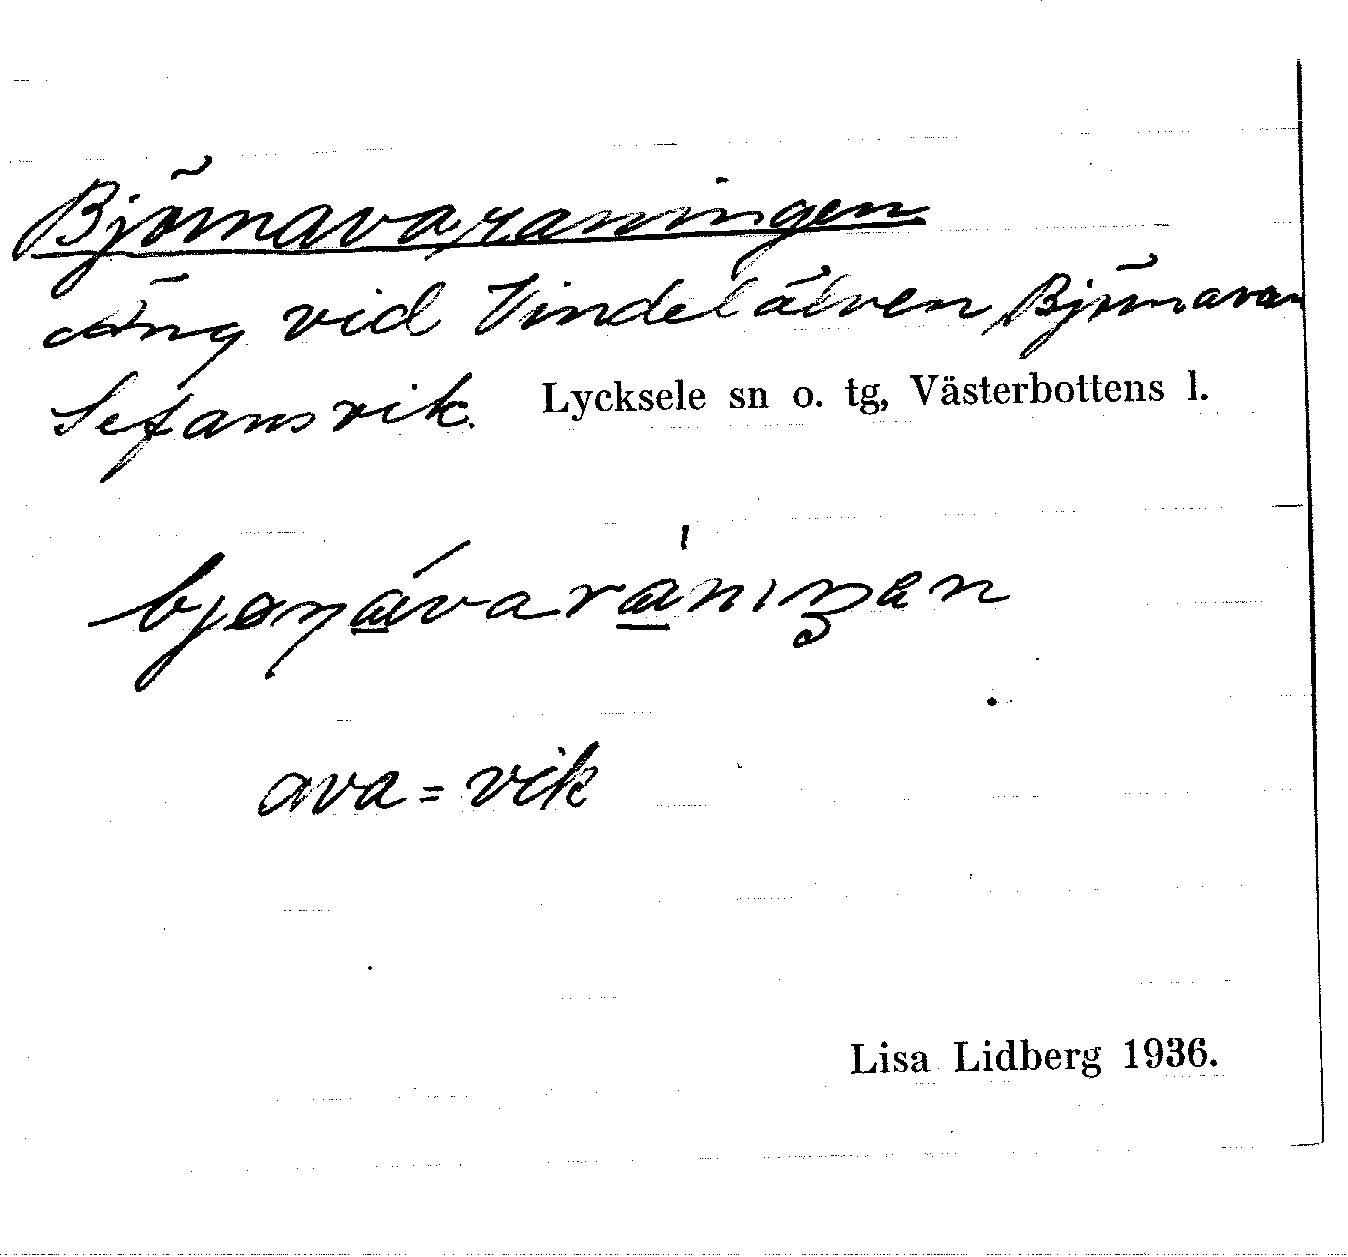 Björnavaraningen
Äng vid Vindelälven, Björnavan
Sefansvik. Lycksele sn o. tg, Västerbottens l.
ava = vik
Lisa Lidberg 1936.